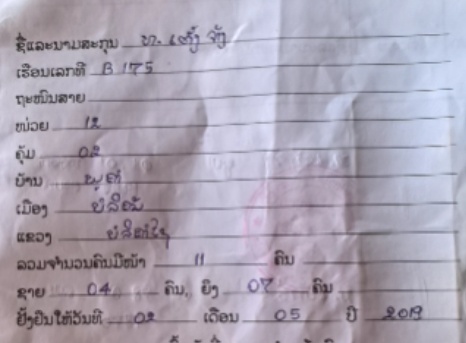 ຊື່ແລະນາມສະກຸນ ທ. ເຕັ້ງ ຈັງ
ເຮືອນເລກທີ B 175
ຖະໜົນສາຍ
ໜ່ວຍ 12
ຄຸ້ມ 02
ບ້ານ
ເມືອງ
ແຂວງ
ລວມຈຳນວນຄົນມີໜ້າ 11 ຄົນ
ຊາຍ 04 ຄົນ, ຍິງ 07 ຄົນ
ຢັ້ງຢືນໃຫ້ວັນທີ 02 ເດືອນ 05 ປີ 2019